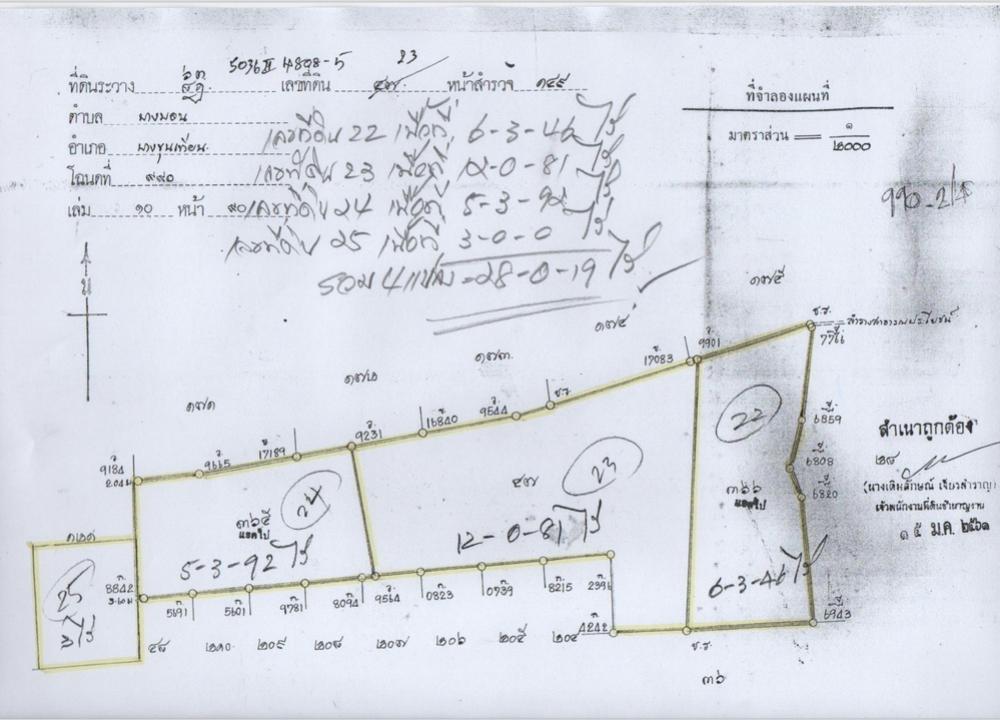 5036 II 4808-5
ที่ดินระวาง เลขที่ดิน ๔๗ 23 หน้าสำรวจ ๑๔๙
ที่จำลองแผนที่
ตำบล บางบอน
เลขที่ดิน 22 เนื้อที่ 6-3-46 ไร่
มาตราส่วน ๑/๒๐๐๐
อำเภอ บางขุนเทียน
เลขที่ดิน 23 เนื้อที่ 12-0-81 ไร่
โฉนดที่ ๙๙๐
เล่ม ๑๐ หน้า ๙๐
เลขที่ดิน 24 เนื้อที่ 5-3-92 ไร่
เลขที่ดิน 25 เนื้อที่ 3-0-0 ไร่
รวม 4 แปลง = 28-0-19 ไร่
น
๑๗๕
๑๗๔
ช.ร.
ลำรางสาธารณประโยชน์
๑๗๓
17083
9901
๑๗๒
๑๗๑
16840
9544
ช.ร.
9231
17189
9665
9184
22
6859
สำเนาถูกต้อง
6808
6820
24
23
๔๗
๓๖๖
แยกไป
๓๖๕
แยกไป
เจ้าพนักงานที่ดินชำนาญงาน
๑๕ ม.ค. ๒๕๖๑
12-0-81 ไร่
5-3-92 ไร่
6-3-46 ไร่
25
3 ไร่
8842
5691
5601
9781
8094
9564
0823
0739
8215
2391
4242
6943
๔๘
๒๑๐
๒๐๙
๒๐๘
๒๐๗
๒๐๖
๒๐๕
๒๐๔
ช.ร.
๓๖